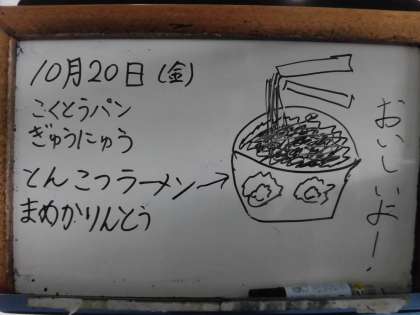 10月20日(金)
こくとうパン
ぎゅうにゅう
とんこつラーメン→
まめかりんとう
おいしいよー!